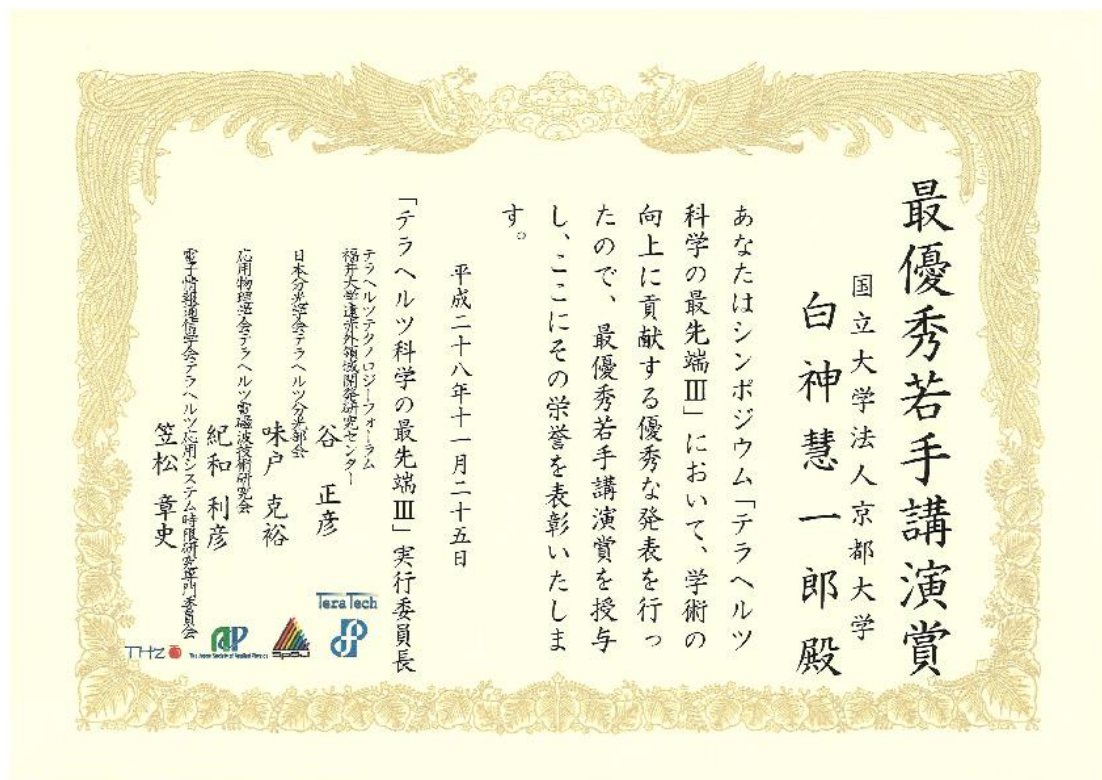 最優秀若手講演賞
国立大学法人京都大学
白神慧一郎殿
あなたはシンポジウム「テラヘルツ
科学の最先端Ⅲ」において、学術の
向上に貢献する優秀な発表を行っ
たので、最優秀若手講演賞を授与
し、ここにその栄誉を表彰いたしま
す。
平成二十八年十一月二十五日
「テラヘルツ科学の最先端Ⅲ」実行委員長
テラヘルツテクノロジーフォーラム
福井大学遠赤外領域開発研究センター
谷 正彦
日本分光学会テラヘルツ分光部会
味戸 克裕
応用物理学会テラヘルツ電磁波技術研究会
紀和 利彦
電子情報通信学会テラヘルツ応用システム時限研究専門委員会
笠松 章史
TeraTech
SPSJ
The Japan Society of Applied Physics
THz